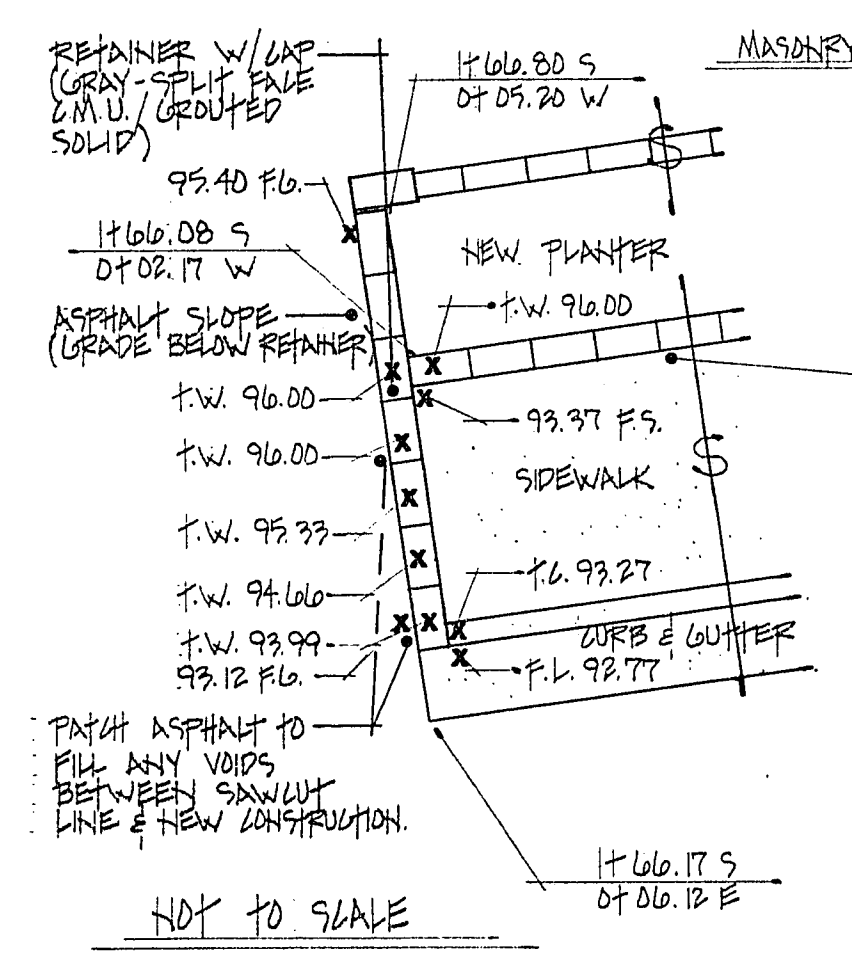 RETAINER W/CAP
(GRAY-SPLIT FACE
C.M.U./GROUTED
SOLID)
1+66.80 S
0+05.20 W
MASONRY
95.40 F.G.
1+66.08 S
0+02.17 W
NEW PLANTER
T.W. 96.00
ASPHALT SLOPE
(GRADE BELOW RETAINER)
T.W. 96.00
93.37 F.S.
T.W. 96.00
SIDEWALK
T.W. 95.33
T.C. 93.27
T.W. 94.66
T.W. 93.99
CURB & GUTTER
93.12 F.G.
F.L. 92.77
PATCH ASPHALT TO
FILL ANY VOIDS
BETWEEN SAWCUT
LINE & NEW CONSTRUCTION.
1+66.17 S
0+06.12 E
NOT TO SCALE